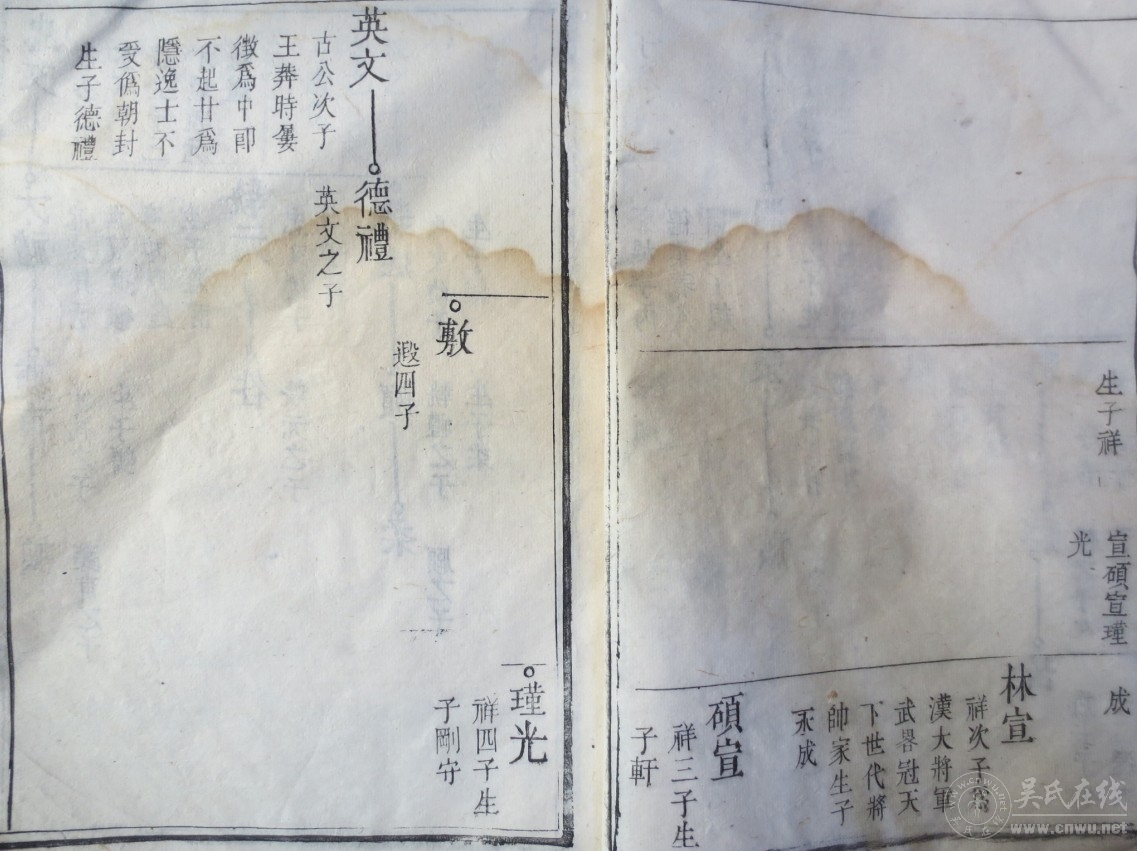 生子祥
宣碩宣瑾
光
成
林宣
祥次子為
漢大將軍
武畧冠天
下世代將
帥家生子
永成
碩宣
祥三子生
子軒
敷
遐四子
瑾光
祥四子生
子剛守
英文
古公次子
王莽時屡
徴爲中郎
不起甘爲
隱逸士不
受僞朝封
生子德禮
德禮
英文之子
吴氏在线
www.cnwu.net